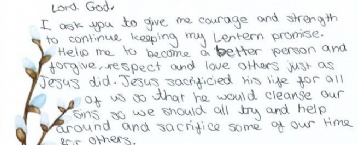 Lord God,
I ask you to give me courage and strength
to continue keeping my Lentern promise.
Help me to become a better person and
forgive, respect and love others just as
Jesus did. Jesus sacrificied his life for all
of us so that he would cleanse our
sins so we should all try and help
around and sacrifice some of our time
for others.